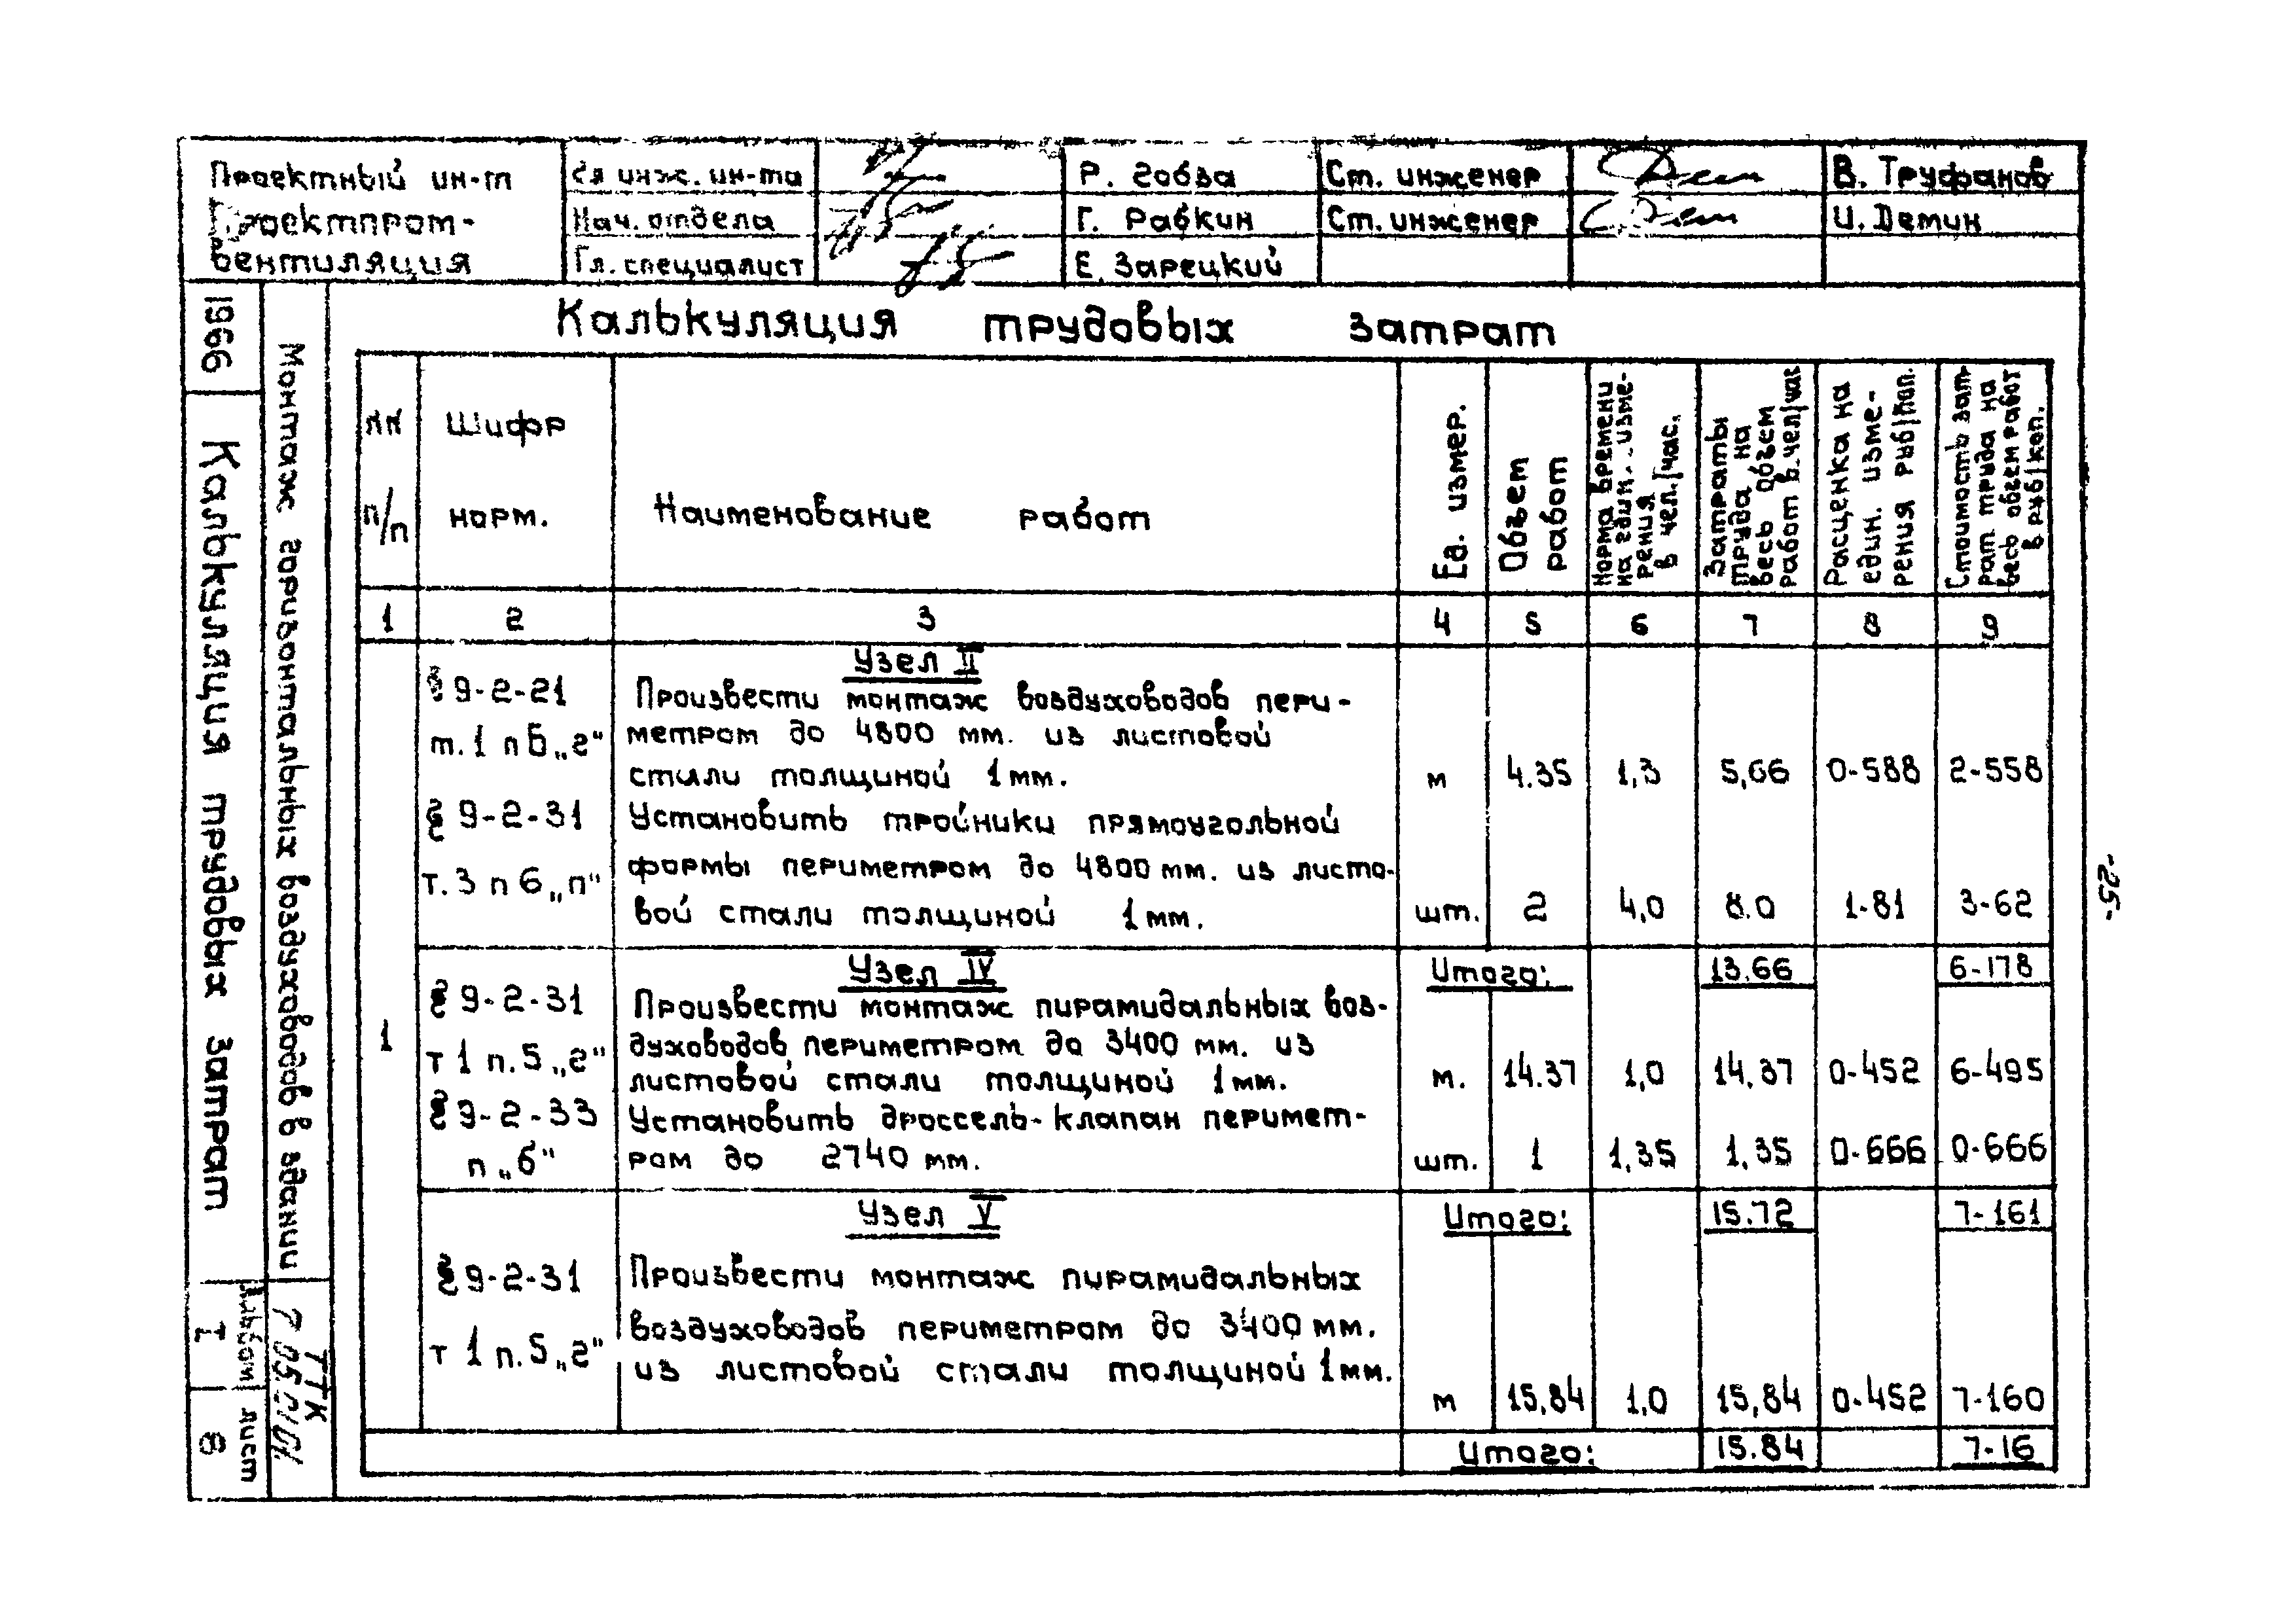 Проектный ин-т
Проектпром-
вентиляция
Гл инж. ин-та
Р. Гобза
Ст. инженер
В. Труфанов
Нач. отдела
Г. Рабкин
Ст. инженер
И. Демин
Гл. специалист
Е. Зарецкий
1966
Калькуляция трудовых затрат
Альбом I
лист 8
Монтаж горизонтальных воздуховодов в здании
ТТК
Калькуляция трудовых затрат
пп
п/п
Шифр
норм.
Наименование работ
Ед. измер.
Объем
работ
Норма времени
на един. изме-
рения
в чел./час.
Затраты
труда на
весь объем
работ в чел/час
Расценка на
един. изме-
рения руб/коп.
Стоимость зат-
рат труда на
весь объем работ
в руб/коп.
1 2 3 4 5 6 7 8 9
Узел II
§ 9-2-21 Произвести монтаж воздуховодов пери-
т.1 п5 „г" метром до 4800 мм. из листовой
стали толщиной 1мм. м 4.35 1,3 5,66 0-588 2-558
§ 9-2-31 Установить тройники прямоугольной
т.3 п 6 „п" формы периметром до 4800 мм. из листо-
вой стали толщиной 1мм. шт. 2 4,0 8.0 1-81 3-62
Узел IV Итого: 13.66 6-178
§ 9-2-31 Произвести монтаж пирамидальных воз-
т 1 п.5 „г" духоводов периметром до 3400 мм. из
листовой стали толщиной 1мм. м. 14.37 1,0 14,37 0-452 6-495
§ 9-2-33 Установить дроссель-клапан перимет-
п „б" ром до 2740 мм. шт. 1 1,35 1,35 0-666 0-666
1
Узел V Итого: 15.72 7-161
§ 9-2-31 Произвести монтаж пирамидальных
т 1 п.5 „г" воздуховодов периметром до 3400 мм.
из листовой стали толщиной 1мм.
м 15,84 1,0 15,84 0-452 7-160
Итого: 15.84 7-16
-25-